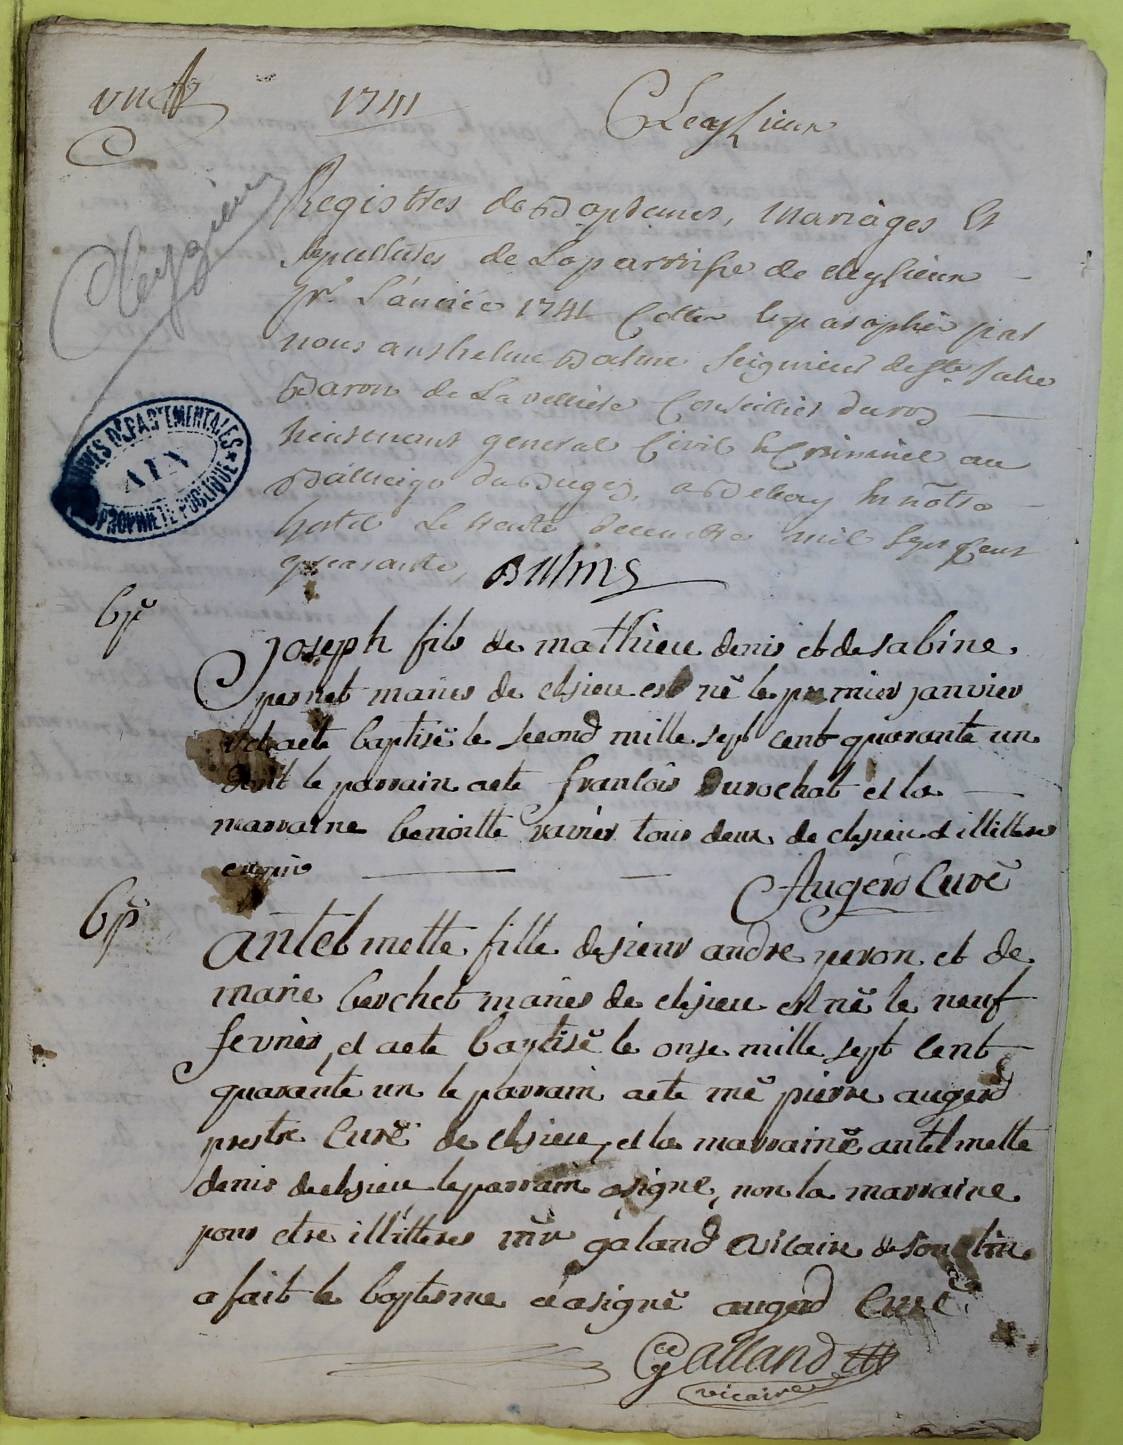 1741
Cleysieux
Cleyzieux
Registres de Baptemes, Mariages Et
sepultures de La parroisse de cleysieux
pr. L'année 1741 Cottée & paraphée par
nous anthelme Balme seigneur de Ste Julie
Baron de La velliere Conseiller du roy
Lieutenant general Civil & Criminel au
Balliage du Bugey, a Belley En nôtre
hotel Le trente decembre mil sept cent
quarante,
ARCHIVES DÉPARTEMENTALES
AIN
PROPRIÉTÉ PUBLIQUE
bp
joseph fils de mathieu denis et de sabine
pernet maries de clesieu est né le premier janvier
et a ete baptisé le second mille sept cent quarante un
dont le parrain a ete francois durochat et la
marraine benoitte ravier tous deux de clesieu et illitteres
Augerd Curé
bp
antelmette fille de sieur andre peron et de
marie berchet maries de clesieu est né le neuf
fevrier et a ete baptisé le onse mille sept cent
quarante un le parrain a ete mé pierre augerd
prestre curé de clesieu, et la marrainé antelmette
denis de clesieu le parrain a signe, non la marraine
pour etre illitteres mr galand vicaire de
a fait le baptesme é a signé augerd Curé
Galland
vicaire